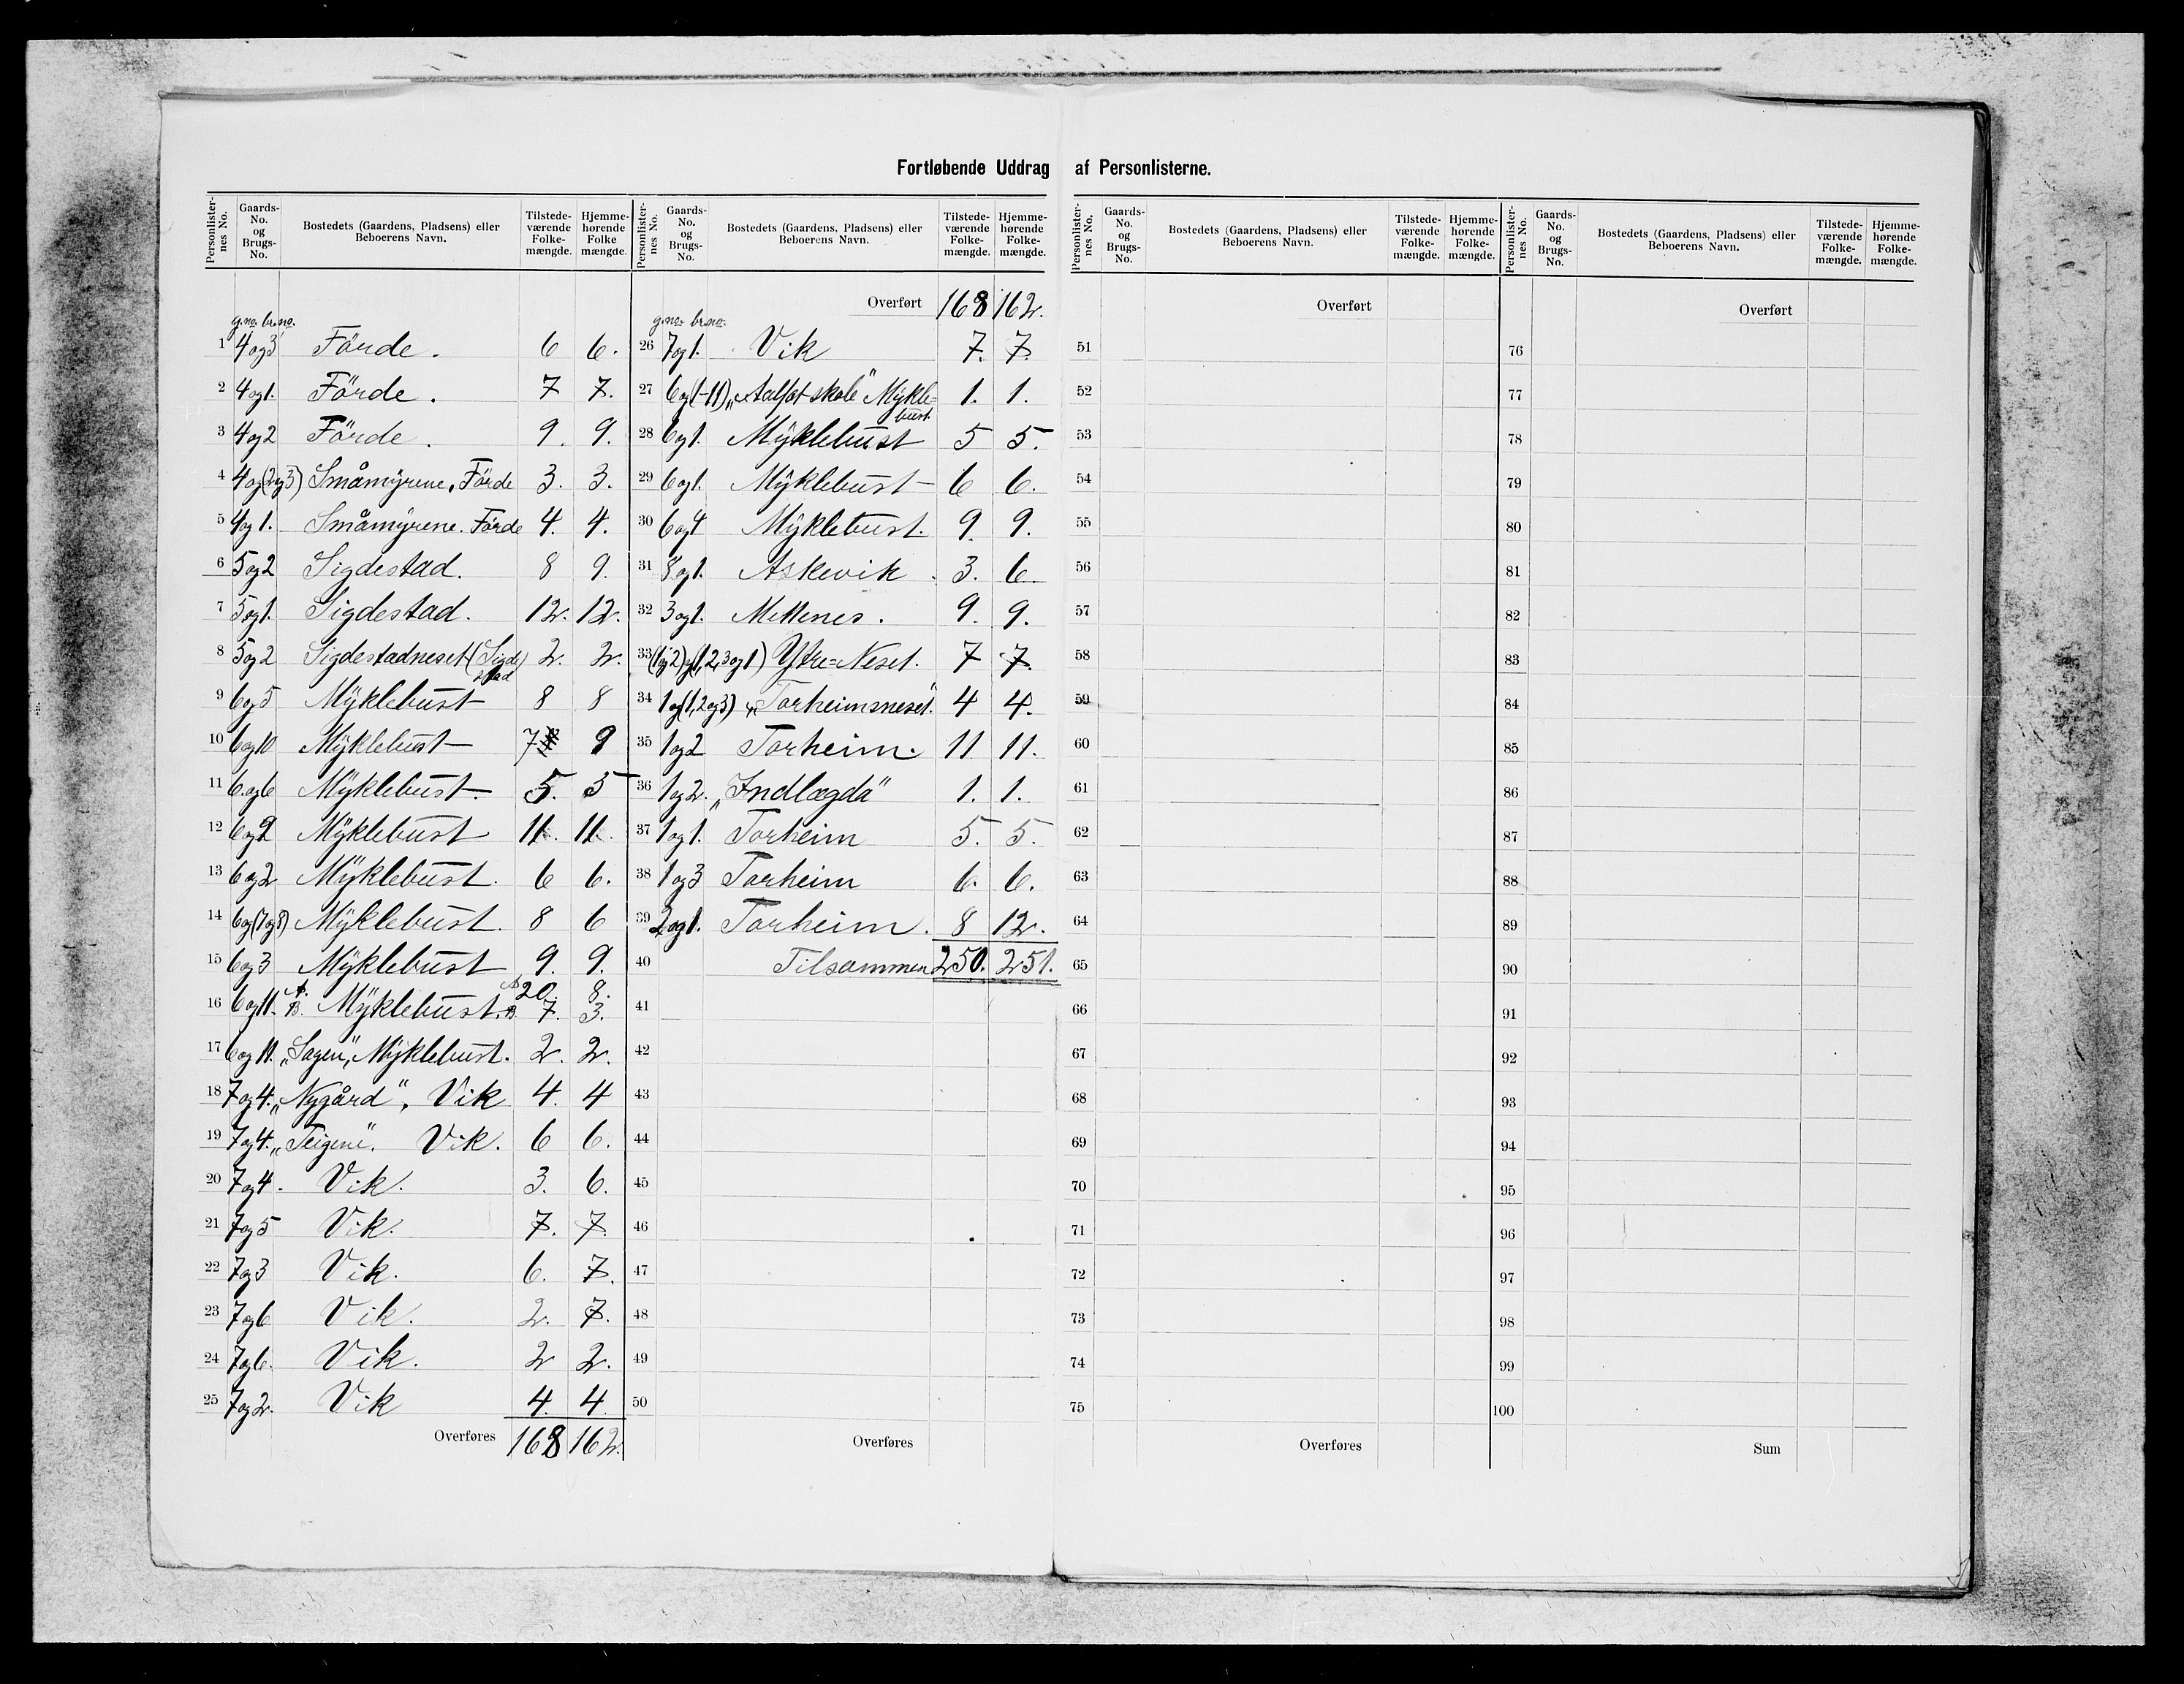 Fortløbende Uddrag af Personlisterne.
Personlisternes No. | Gaards-No. og Brugs-No. | Bostedets (Gaardens, Pladsens) eller Beboerens Navn. | Tilstedeværende Folkemængde. | Hjemmehørende Folkemængde.
g.no. br.no.
1 4og3 Förde. 6 6.
2 4og1. Förde. 7 7.
3 4og2 Förde. 9. 9.
4 4og(2og3) Småmÿrene, Förde 3. 3.
5 4og1. Småmÿrene. Förde 4. 4.
6 5og2 Sigdestad. 8 9.
7 5og1. Sigdestad. 12. 12.
8 5og2 Sigdestadneset (Sigdestad) 2. 2.
9 6og5 Mÿklebust 8 8
10 6og10 Mÿklebust 7 9
11 6.og6 Mÿklebust. 5. 5
12 6og9 Mÿklebust 11. 11.
13 6og2 Mÿklebust. 6 6.
14 6og(7og8) Mÿklebust. 8 6
15 6og3 Mÿklebust 9. 9.
16 6og11. A. B. Mÿklebust. A 20. 8. B. 7. 3.
17 6og11. „Sagen", Mÿklebust. 2. 2.
18 7og4. „Nygård", Vik 4. 4
19 7og4. „Teigene". Vik. 6 6.
20 7og4. Vik. 3. 6.
21 7og5 Vik. 7. 7.
22 7og3 Vik. 6. 7.
23 7og6 Vik. 2. 7.
24 7og6. Vik. 2 2.
25 7og2. Vik 4. 4.
Overføres 168 162.
Personlisternes No. | Gaards-No. og Brugs-No. | Bostedets (Gaardens, Pladsens) eller Beboerens Navn. | Tilstedeværende Folkemængde. | Hjemmehørende Folkemængde.
Overført 168 162.
g.no. br.no.
26 7og1. Vik 7. 7.
27 6og(1-11) „Aalfot skole" Mÿklebust 1. 1.
28 6og1. Mÿklebust 5 5.
29 6og1. Mÿklebust 6 6.
30 6og4 Mÿklebust. 9. 9.
31 8og1. Askevik. 3. 6.
32 3og1. Mettenes. 9. 9.
33 (1og2)og(1,2,3og1) Ytre=Neset. 7 7.
34 1og(1,2og3) „Torheimsneset". 4 4.
35 1og2 Torheim. 11 11.
36 1og2. „Indlægda" 1. 1.
37 1og1. Torheim 5. 5.
38 1og3 Torheim 6. 6.
39 2og1. Torheim. 8 12.
40 Tilsammen 250. 251.
41
42
43
44
45
46
47
48
49
50
Overføres
Personlisternes No. | Gaards-No. og Brugs-No. | Bostedets (Gaardens, Pladsens) eller Beboerens Navn. | Tilstedeværende Folkemængde. | Hjemmehørende Folkemængde.
Overført
51
52
53
54
55
56
57
58
59
60
61
62
63
64
65
66
67
68
69
70
71
72
73
74
75
Overføres
Personlisternes No. | Gaards-No. og Brugs-No. | Bostedets (Gaardens, Pladsens) eller Beboerens Navn. | Tilstedeværende Folkemængde. | Hjemmehørende Folkemængde.
Overført
76
77
78
79
80
81
82
83
84
85
86
87
88
89
90
91
92
93
94
95
96
97
98
99
100
Sum